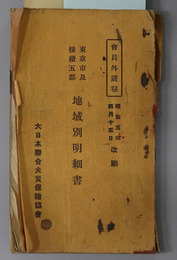 會員外嚴秘
昭和五年
四月十五日 改刷
東京市及
接續五郡
地域別明細書
大日本聯合火災保險協會